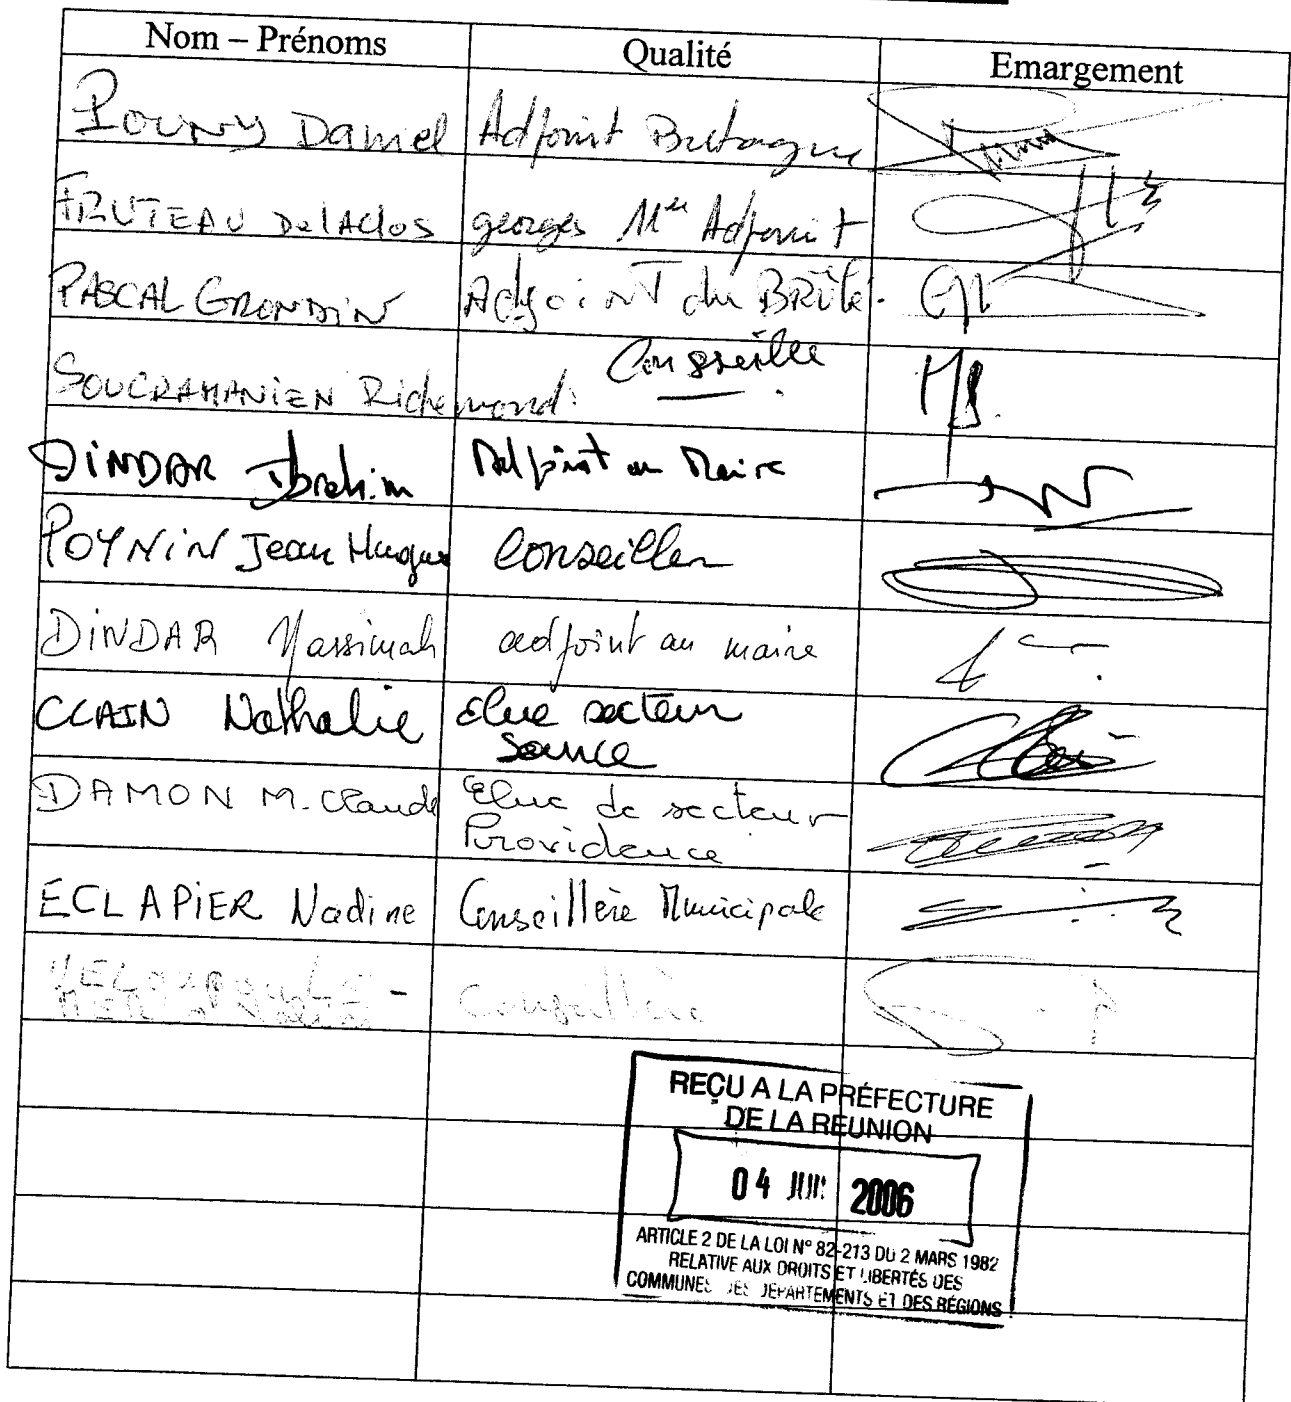 Nom – Prénoms Qualité Emargement
Daniel Adjoint Bretagne
FRUTEAU DelAclos georges 11e Adjoint
PASCAL GRONDIN Adjoint du BRÛlé.
SOUCRAMANIEN Richemond: Consseille
DINDAR Ibrahim Adjoint au Maire
POYNIN Jean Hugues Conseiller
DINDAR Nassimah adjoint au maire
CLAIN Nathalie Elue secteur
source
DAMON M. Claude Elue de secteur
Providence
ECLAPIER Nadine Conseillère Municipale
Conseillère
REÇU A LA PRÉFECTURE
DE LA REUNION
04 2006
ARTICLE 2 DE LA LOI N° 82-213 DU 2 MARS 1982
RELATIVE AUX DROITS ET LIBERTÉS DES
COMMUNES DES DEPARTEMENTS ET DES RÉGIONS